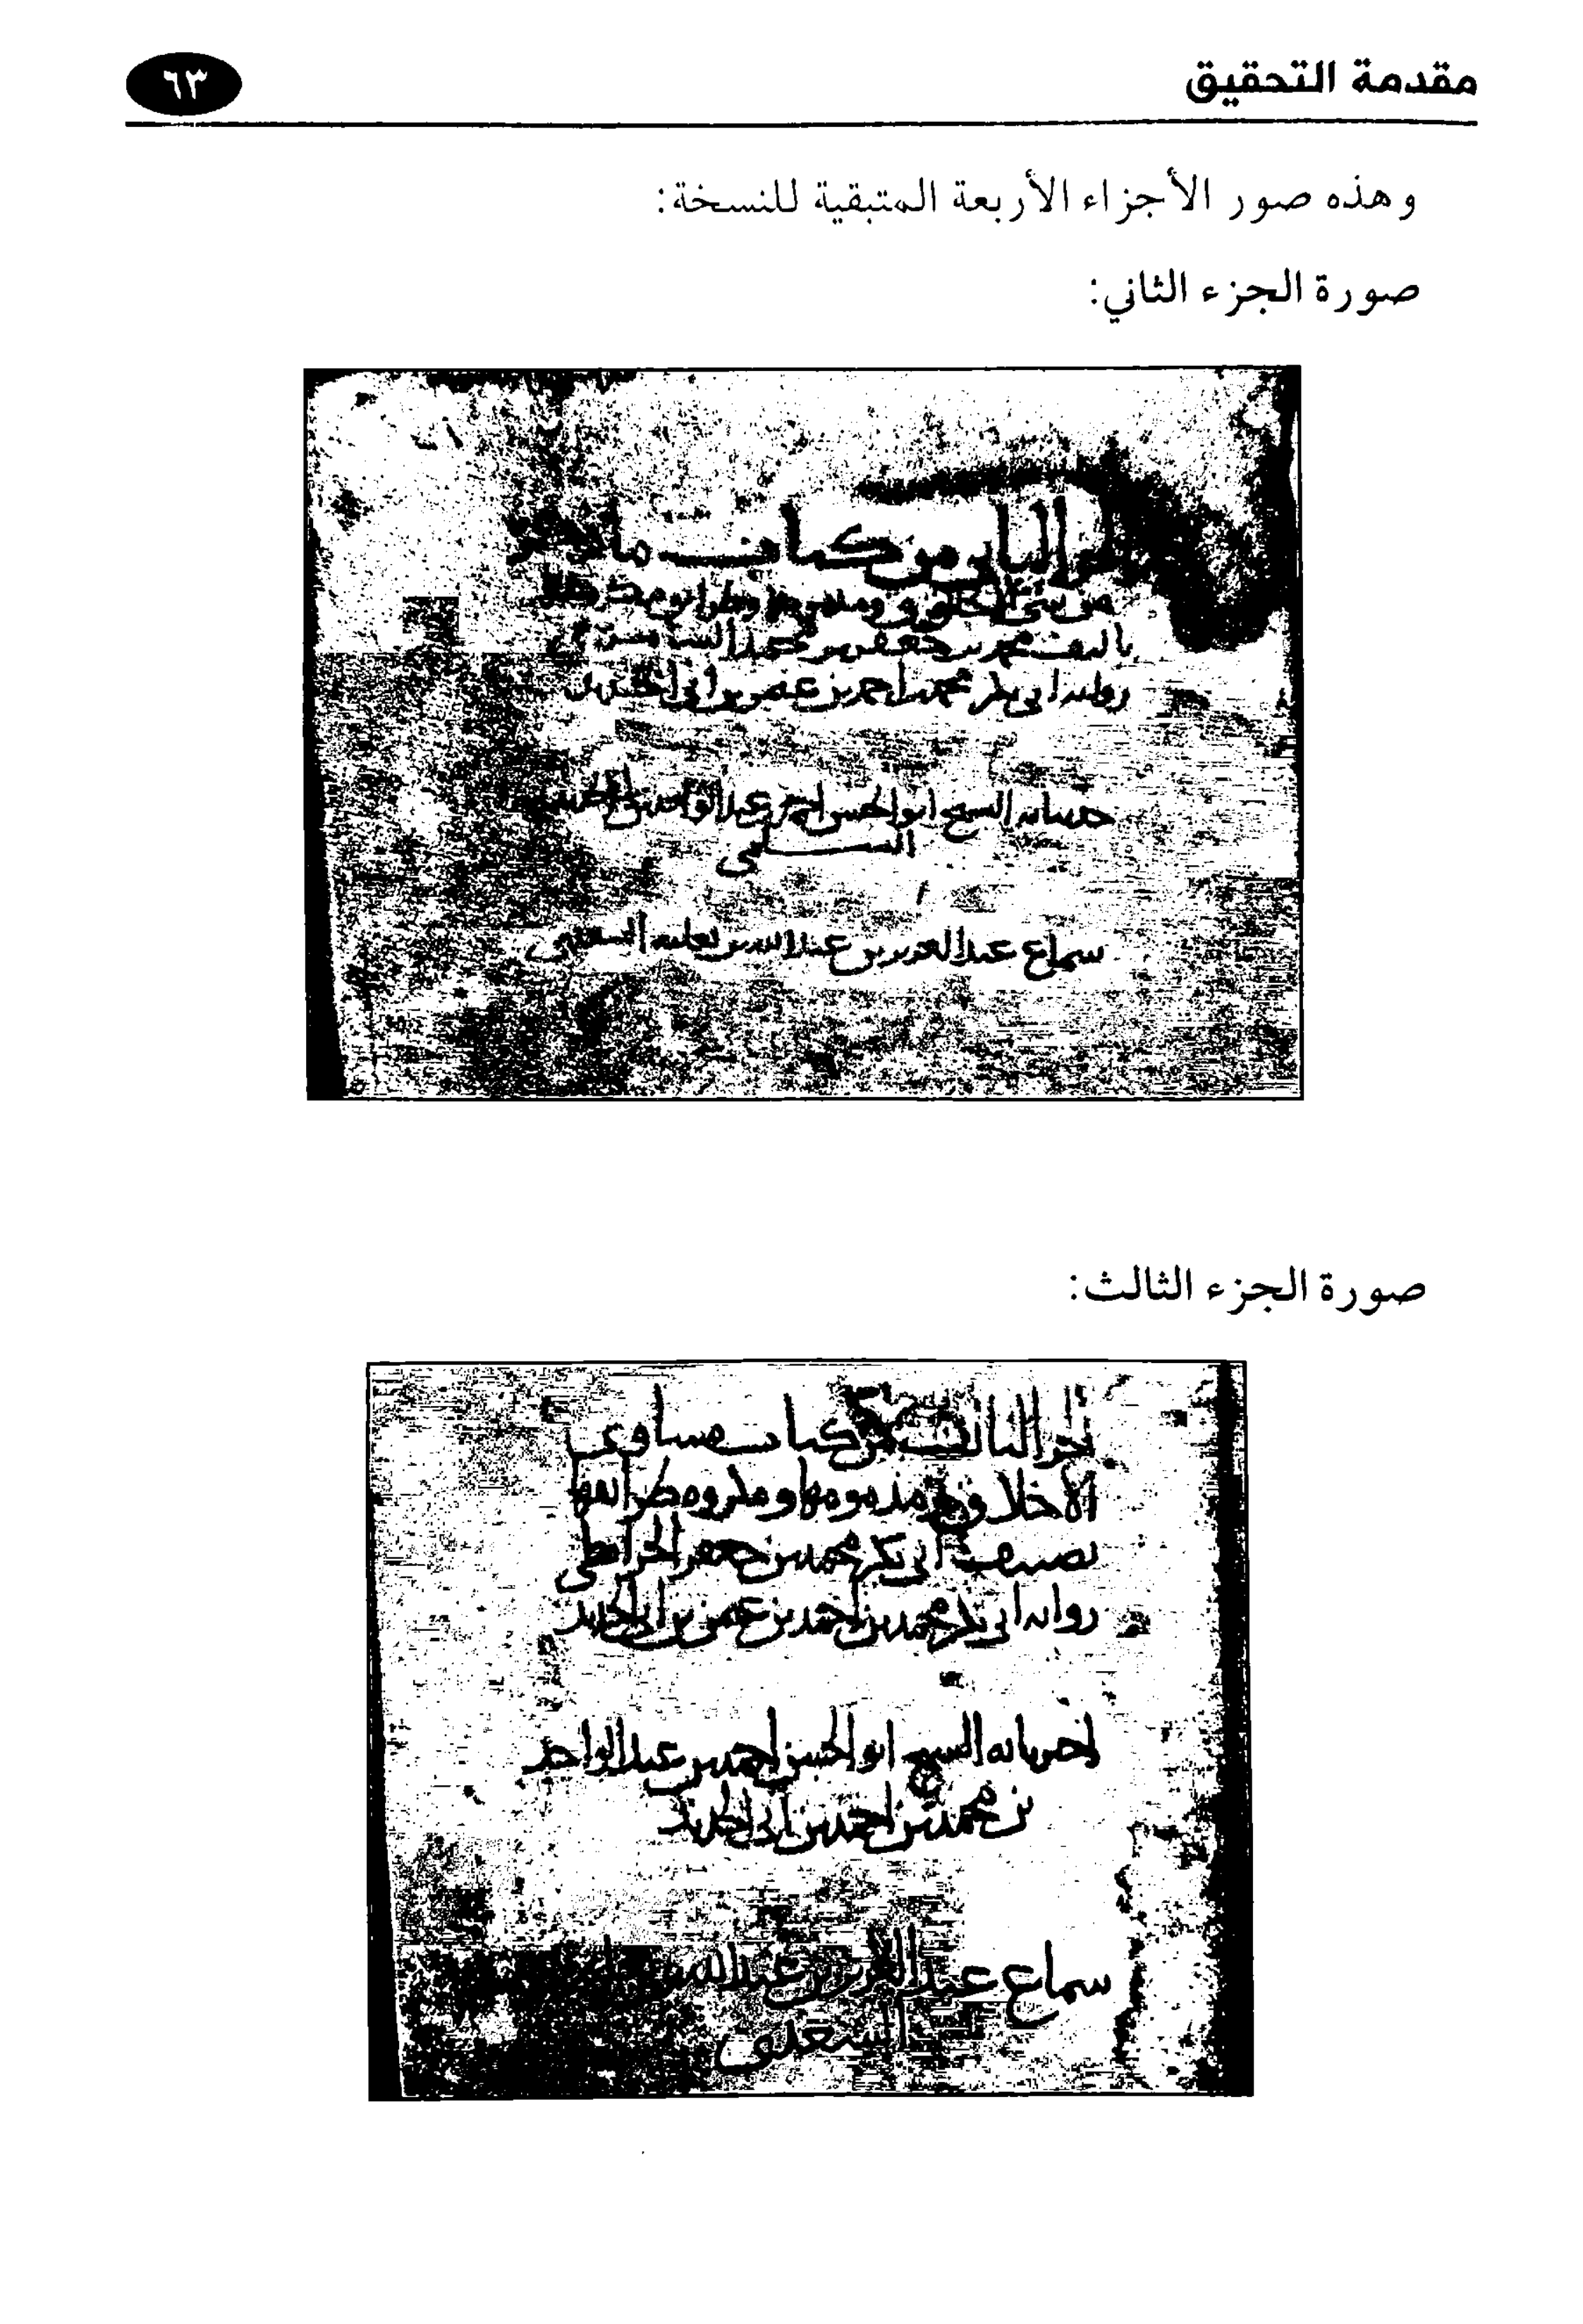 مقدمة التحقيق
٦٣
وهذه صور الأجزاء الأربعة المتبقية للنسخة:
صورة الجزء الثاني:
من كتاب ما
محمد بن جعفر بن محمد
رواية ابي بكر محمد بن احمد بن عثمن بن ابي الحديد
حدثنا به الشيخ ابو الحسن احمد بن عبد الواحد بن
السلمي
سماع عبد العزيز بن عبد الله بن ثعلبة السعدي
صورة الجزء الثالث:
الجزء الثالث من كتاب مساوئ
الأخلاق ومذمومها ومكروه طرائقها
تصنيف أبي بكر محمد بن جعفر الخرائطي
رواية ابي بكر محمد بن احمد بن عثمن بن ابي الحديد
اخبرنا به الشيخ ابو الحسن احمد بن عبد الواحد
بن محمد بن احمد بن ابي الحديد
سماع عبد العزيز بن عبد الله بن